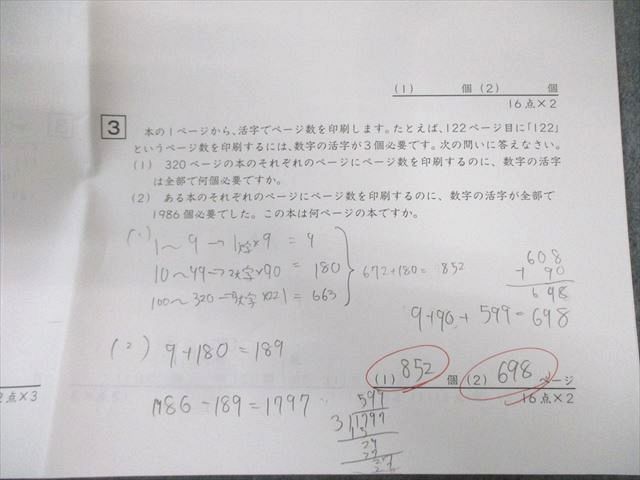 (1) 個 (2) 個
16点×2
3 本の1ページから、活字でページ数を印刷します。たとえば、122ページ目に「122」
というページ数を印刷するには、数字の活字が3個必要です。次の問いに答えなさい。
(1) 320ページの本のそれぞれのページにページ数を印刷するのに、数字の活字
は全部で何個必要ですか。
(2) ある本のそれぞれのページにページ数を印刷するのに、数字の活字が全部で
1986個必要でした。この本は何ページの本ですか。
(1)
1〜9→1文字×9 = 9
10〜99→2文字×90 = 180
100〜320→3文字×221 = 663
672+180= 852
608
+ 90
698
9+90+599=698
(2) 9+180=189
1986-189=1797
599
3)1797
15
29
27
27
(1) 852 個 (2) 698 ページ
16点×2
2点×3